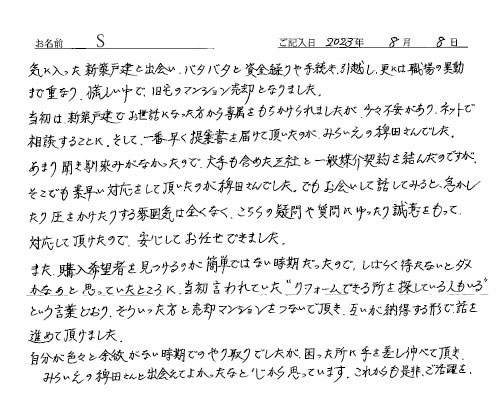 お名前 S ご記入日 2023年 8月 8日
気に入った新築戸建と出会い、バタバタと資金繰りや手続き、引越し、更には職場の異動
まで重なり、慌しい中で、旧宅のマンション売却となりました。
当初は新築戸建でお世話になった方から専属をもちかけられましたが、少々不安があり、ネットで
相談することに。そして、一番早く提案書を届けて頂いたのが、みらいえの稗田さんでした。
あまり聞き馴染みがなかったので、大手も含めた三社と一般媒介契約を結んだのですが、
そこでも素早い対応をして頂いたのが稗田さんでした。でもお会いして話してみると、急かし
たり圧をかけたりする雰囲気は全くなく、こちらの疑問や質問にゆったり誠意をもって
対応して頂けたので、安心してお任せできました。
また、購入希望者を見つけるのが簡単ではない時期だったので、しばらく待たないとダメ
かなぁと思っていたところに、当初言われていた“リフォームできる所を探している人もいる”
という言葉どおり、そういった方と売却マンションをつないで頂き、互いが納得する形で話を
進めて頂けました。
自分が色々と余裕がない時期でのやり取りでしたが、困った所に手を差し伸べて頂き、
みらいえの稗田さんと出会えてよかったなと心から思っています。これからも是非、ご活躍を。